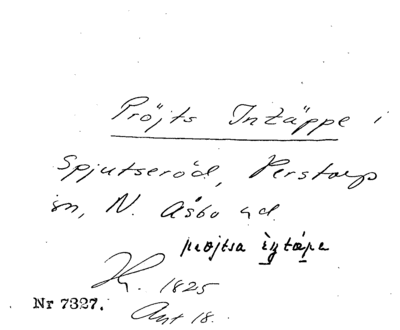 Pröjts Intäppe i
Spjutseröd, Perstorp
sn, N. Åsbo hd.
pröjtsa
1825
Nr 7327.
Ant 18.